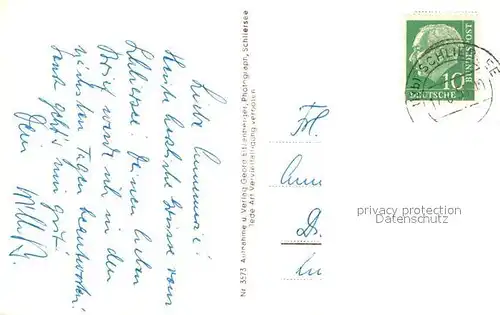 Liebe Annemarie!
Heute herzliche Grüsse vom
Schliersee! Deinen lieben
Brief werde ich in den
nächsten Tagen beantworten!
Sonst geht's mir gut!
Dein
Willi
Nr. 3573 Aufnahme u. Verlag Georg Eißenberger, Photograph, Schliersee
Jede Art Vervielfältigung verboten
10
DEUTSCHE
BUNDESPOST
SCHLIERSEE
Frl.
Ann
D.
privacy protection
Datenschutz